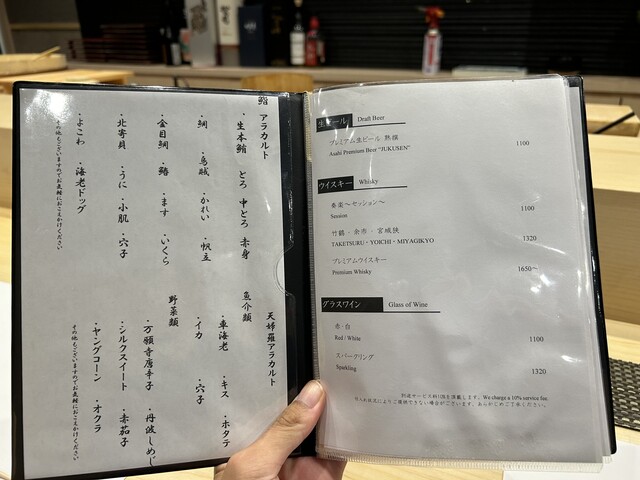 鮨 アラカルト
・生本鮪 とろ 中とろ 赤身
・鯛 ・烏賊 ・かれい ・帆立
・金目鯛 ・鰆 ・ます ・いくら
・北寄貝 ・うに ・小肌 ・穴子
・よこわ ・海老ドッグ
その他もございますのでお気軽におこえかけください
天婦羅アラカルト
魚介類
・車海老 ・キス ・ホタテ
・イカ ・穴子
野菜類
・万願寺唐辛子 ・丹波しめじ
・シルクスイート ・赤茄子
・ヤングコーン ・オクラ
その他もございますのでお気軽におこえかけください
生ビール Draft Beer
プレミアム生ビール 熟撰
Asahi Premium Beer "JUKUSEN" 1100
ウイスキー Whisky
香楽～セッション～
Session 1100
竹鶴・余市・宮城峡
TAKETSURU・YOICHI・MIYAGIKYO 1320
プレミアムウイスキー
Premium Whisky 1650～
グラスワイン Glass of Wine
赤・白
Red / White 1100
スパークリング
Sparkling 1320
別途サービス料10%を頂戴します。We charge a 10% service fee.
仕入れ状況によりご提供できない場合がございます。あらかじめご了承ください。